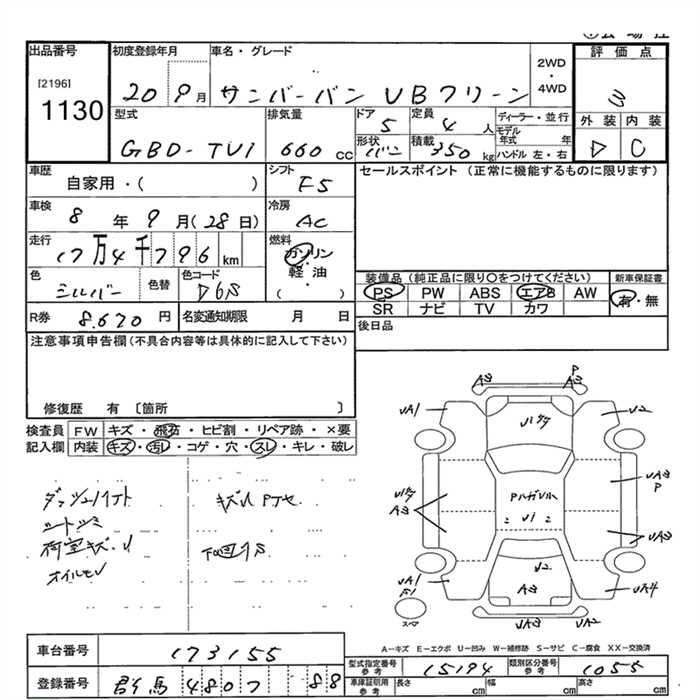 出品番号 初度登録年月 車名・グレード 2WD・4WD 評価点
[2196]
1130
20 9月 サンバーバン VBクリーン 3
型式 排気量 ドア 定員 ディーラー・並行 外装 内装
GBD-TV1 660cc 5 4人 モデル年式 年
形状 バン 積載 350kg ハンドル 左・右 D C
車歴 シフト セールスポイント(正常に機能するものに限ります)
自家用・( ) F5
車検 冷房
8年9月(28日) AC
走行 燃料
17万4千796km ガソリン・軽油・( )
色 色替 色コード 装備品(純正品に限り○をつけてください) 新車保証書
シルバー D6S PS PW ABS エアB AW 有・無
SR ナビ TV カワ
R券 8.670円 名変通知期限 月 日 後日品
注意事項申告欄(不具合内容等は具体的に記入して下さい)
修復歴 有 〔箇所 〕
検査員記入欄 FW キズ・飛石・ヒビ割・リペア跡・×要
内装 キズ・汚レ・コゲ・穴・スレ・キレ・破レ
ダッシュハイト キズ
シートシミ
荷室キズ・V 下回りS
オイルモレ
A3 P A3
VA1 V2
V1
A3 VA3 P
V1
VA3
VA1 V2 A3 VA4
スペア V2 VA3
A-キズ E-エクボ U-凹み W-補修跡 S-サビ C-腐食 XX-交換済
車台番号 173155
登録番号 群馬 4807 88
型式指定番号 参考 15194 類別区分番号 参考 1055
車庫証明用 参考 長さ cm 幅 cm 高さ cm